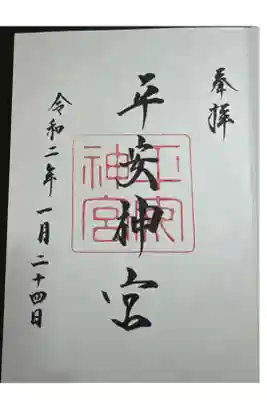 奉拝
平安神宮
平安神宮
令和二年 一月 二十四日